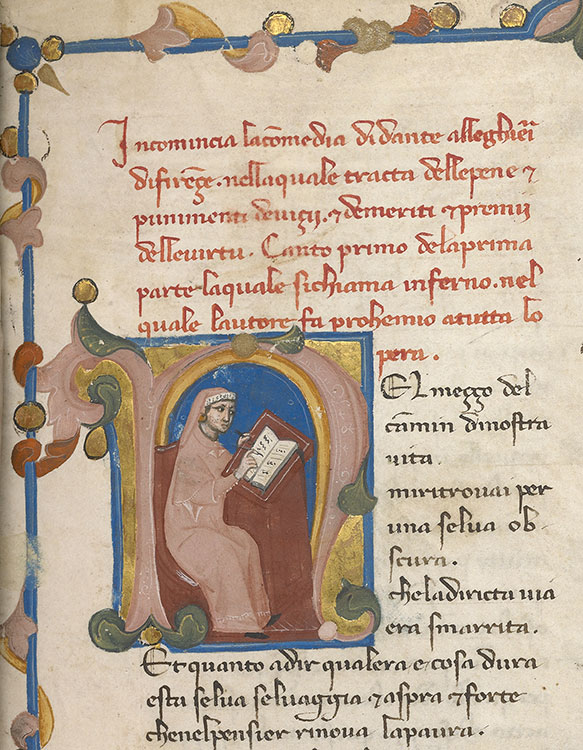 Incomincia lacōmedia di dante alleghieri
difirēçe. nellaquale tracta dellepene ⁊
punimenti deuiçii. ⁊ demeriti ⁊ premii
delleuirtu. Canto primo delaprima
parte laquale sichiama inferno. nel
quale lautore fa prohemio atutta lo
pera.
NEl meçço del
camin dinostra
uita.
miritrouai per
una selua ob
scura.
cheladiricta uia
era smarrita.
Et quanto adir qualera e cosa dura
esta selua seluaggia ⁊ aspra ⁊ forte
chenelpensier rinoua lapaura.